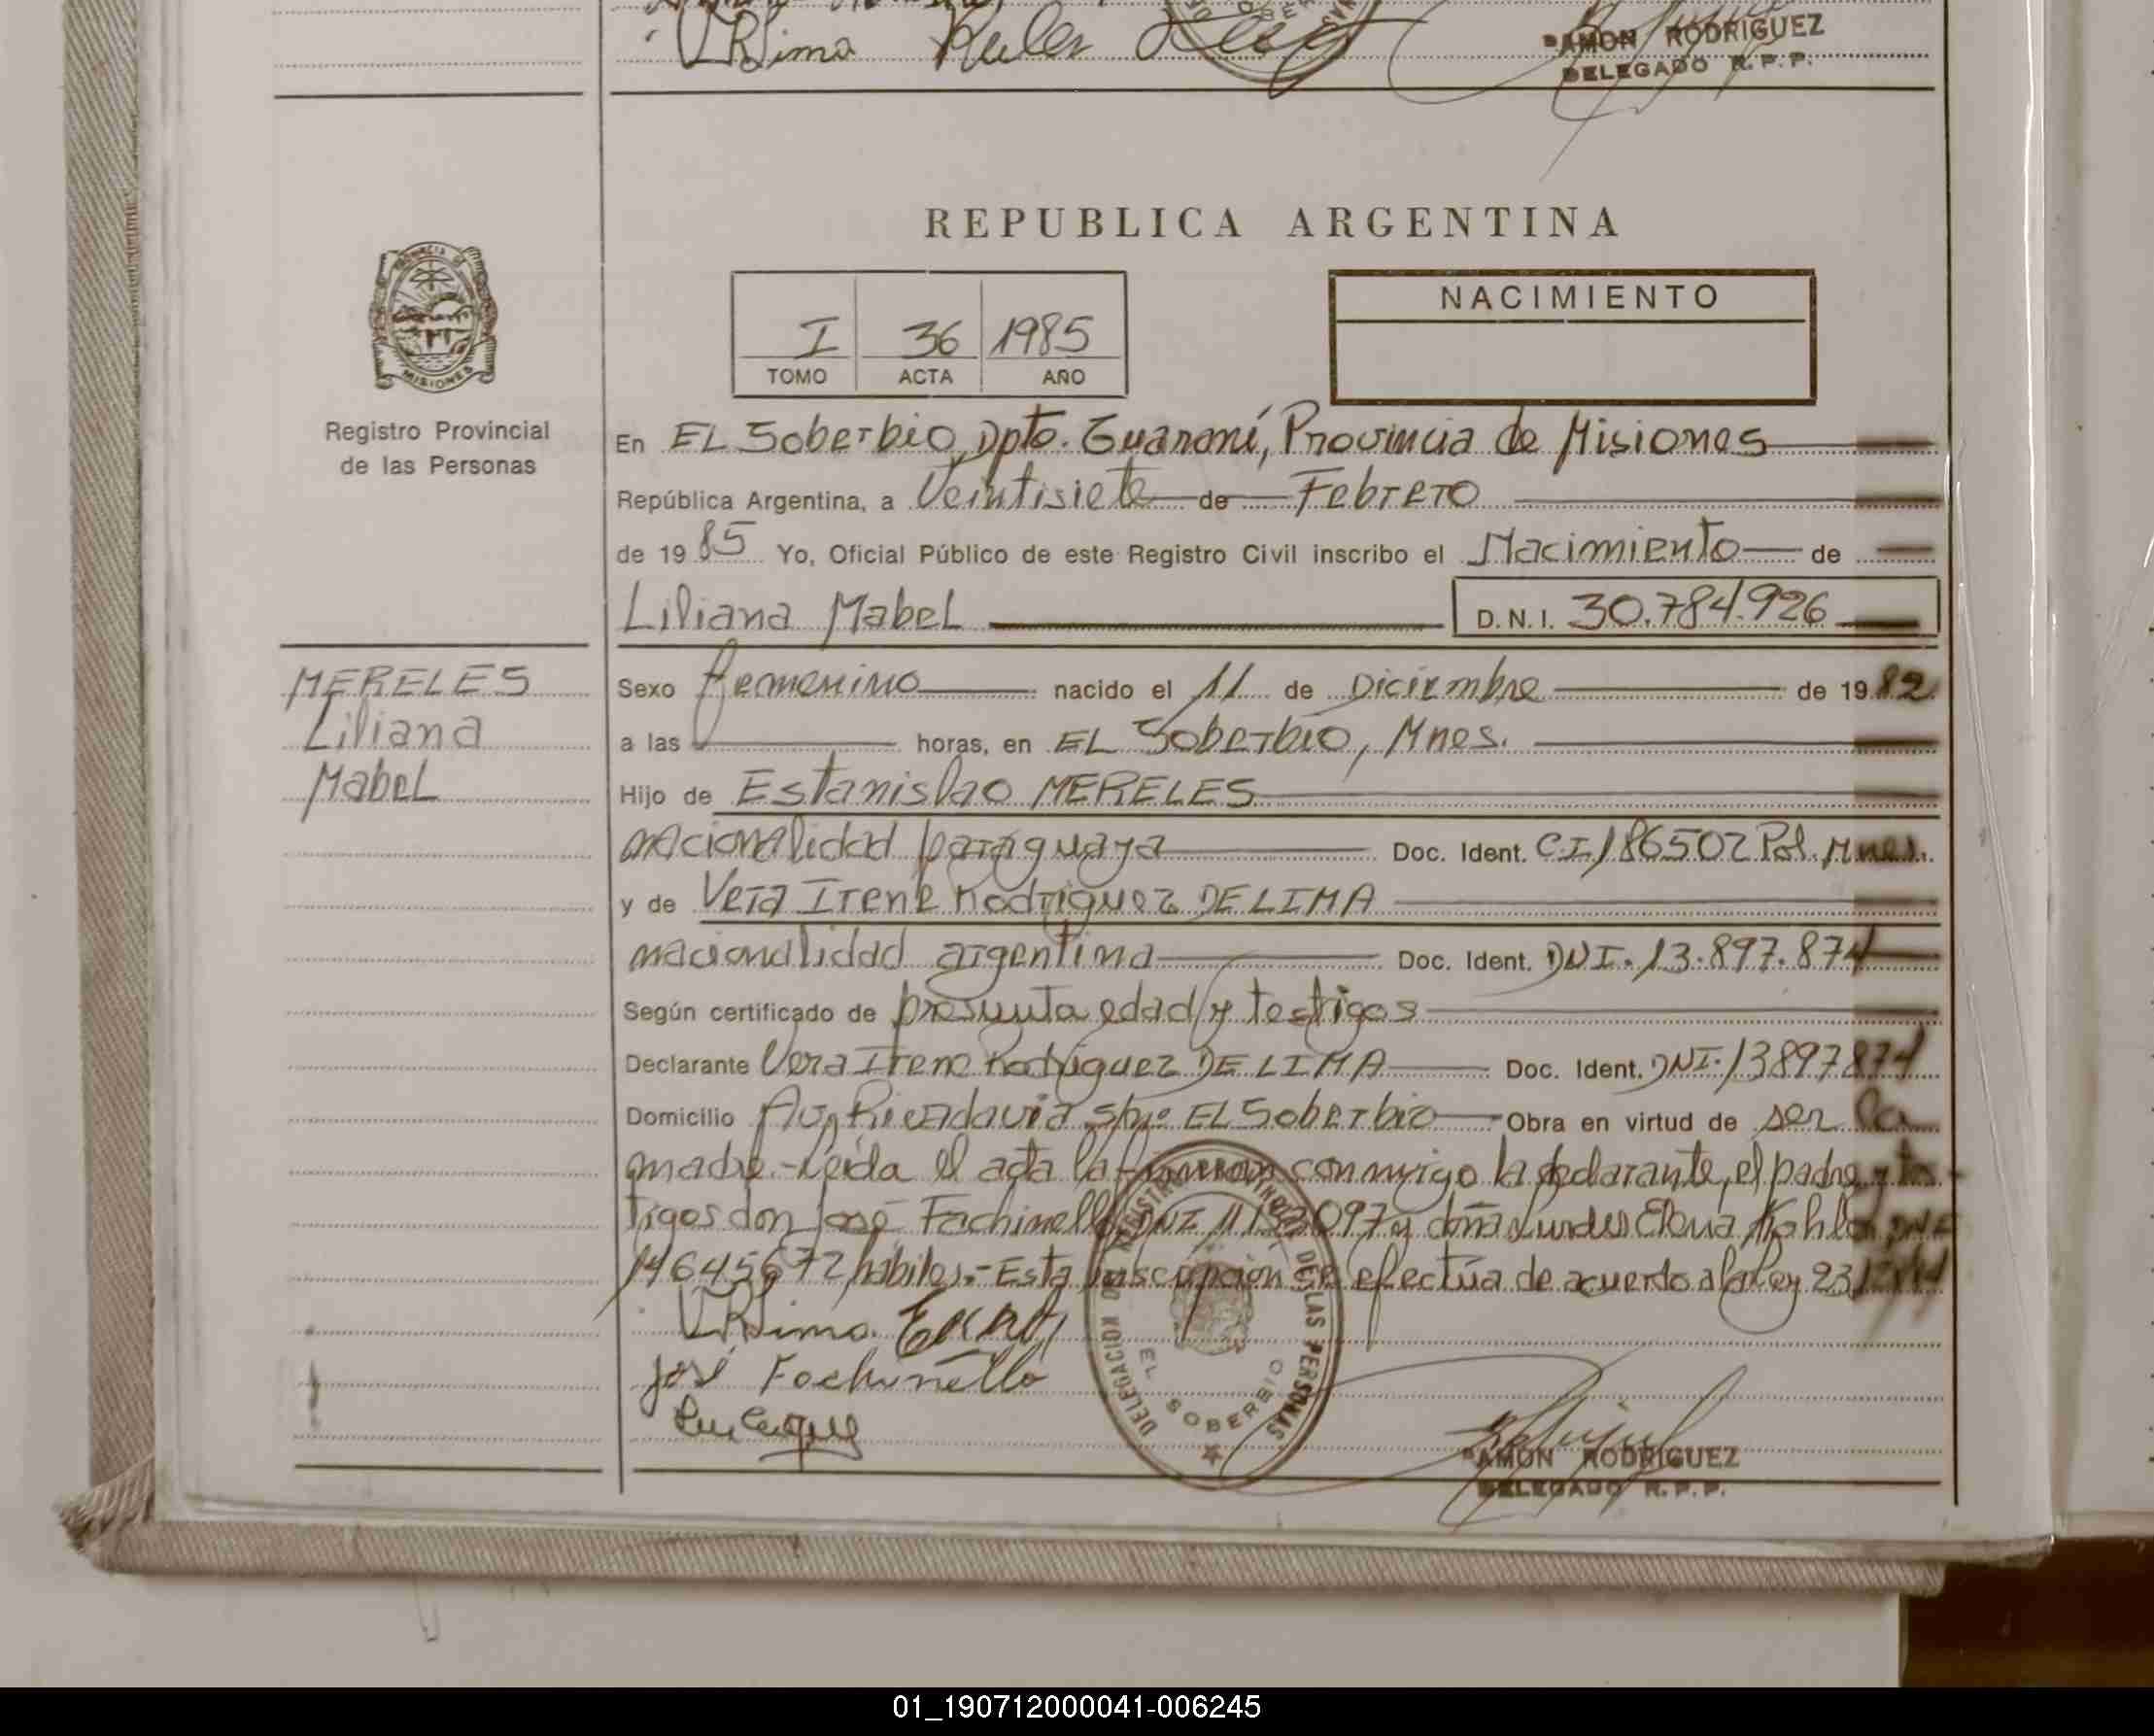 RAMON RODRIGUEZ
DELEGADO R.P.P.
REPUBLICA ARGENTINA
I 36 1985
TOMO ACTA AÑO
NACIMIENTO
PROVINCIA D
MISIONES
Registro Provincial
de las Personas
En EL Soberbio, Dpto. Guaraní, Provincia de Misiones
República Argentina, a Veintisiete de Febrero
de 19 85 Yo, Oficial Público de este Registro Civil inscribo el Nacimiento de
Liliana Mabel D.N.I. 30.784.926
MERELES
Liliana
Mabel
Sexo femenino nacido el 11 de Diciembre de 19 82
a las horas, en EL Soberbio, Mnes.
Hijo de Estanislao MERELES
nacionalidad paraguaya Doc. Ident. CI 186502 Pol. Mnes.
y de Vera Irene Rodriguez DE LIMA
nacionalidad argentina Doc. Ident. DNI. 13.897.874
Según certificado de presunta edad y testigos
Declarante Vera Irene Rodriguez DE LIMA Doc. Ident. DNI. 13897874
Domicilio Av. s/nº EL Soberbio Obra en virtud de ser la
madre.- Leída el acta la firman conmigo la declarante, el padre y tes-
tigos don José Fachinello, DNI y doña Elena DNI
14645672, hábiles.- Esta inscripción se efectúa de acuerdo a la ley
José Fochinello
DELEGACION REGISTRO PROVINCIAL DE LAS PERSONAS
EL SOBERBIO
RAMON RODRIGUEZ
DELEGADO R.P.P.
01_190712000041-006245